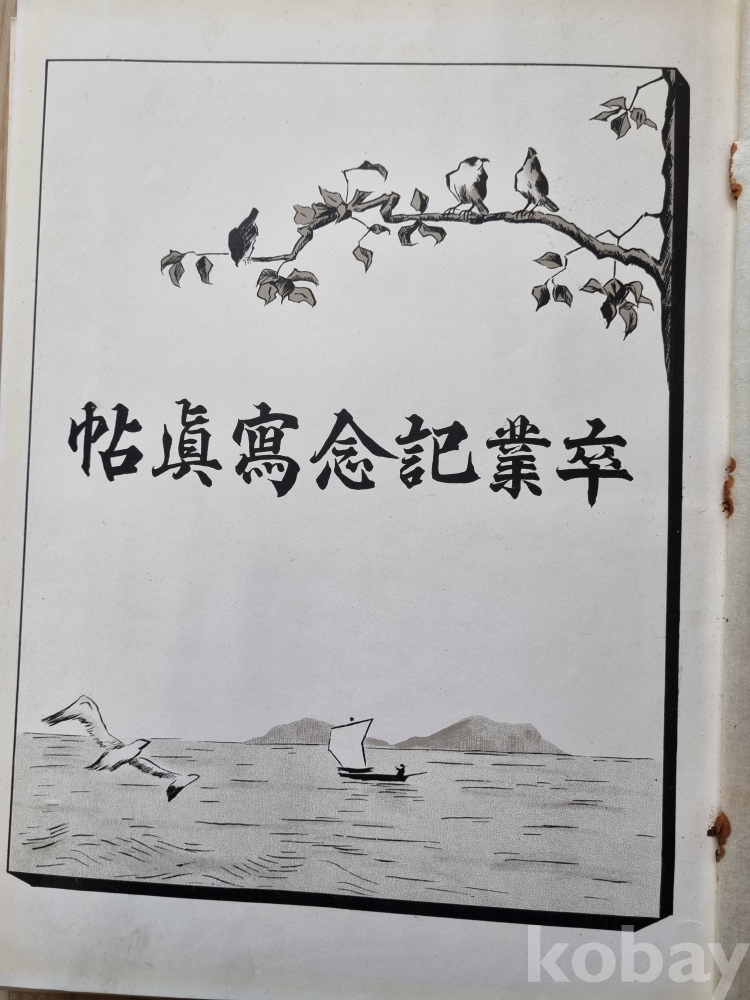 卒業記念寫眞帖
kobay